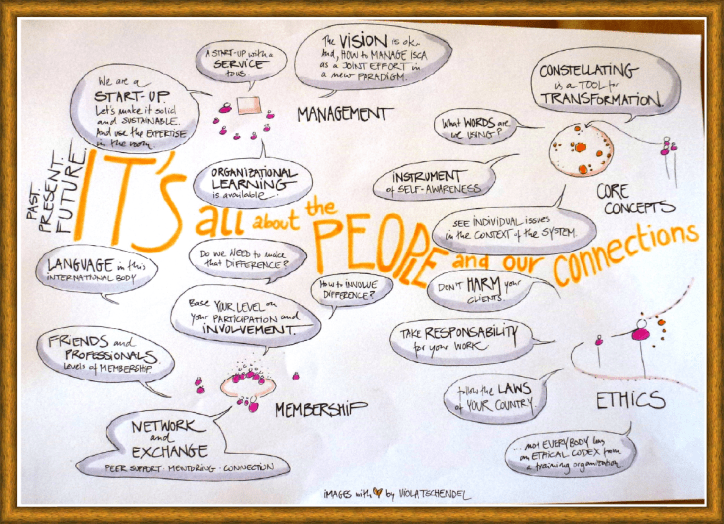 PAST.
PRESENT.
FUTURE.
IT's all about the PEOPLE and our connections
We are a
START-UP.
Let's make it solid
and SUSTAINABLE.
And use the EXPERTISE
in the room
A START-UP with a
SERVICE
to us
The VISION is ok.
And, HOW to MANAGE ISCA
as a JOINT EFFORT in
a new PARADIGM.
MANAGEMENT
ORGANIZATIONAL
LEARNING
is available.
CONSTELLATING
is a TOOL for
TRANSFORMATION.
What WORDS are
we using?
INSTRUMENT
of SELF-AWARENESS
SEE INDIVIDUAL issues
in the CONTEXT of the SYSTEM.
CORE
CONCEPTS
LANGUAGE in this
INTERNATIONAL BODY
Do we NEED to make
that DIFFERENCE?
How to INVOLVE
DIFFERENCE?
Base YOUR LEVEL on
your PARTICIPATION and
INVOLVEMENT.
FRIENDS and
PROFESSIONALS.
Levels of MEMBERSHIP
MEMBERSHIP
NETWORK
and
EXCHANGE
PEER SUPPORT · MENTORING · CONNECTION
DON'T HARM your
CLIENTS.
TAKE RESPONSABILITY
for your WORK
follow the LAWS
of YOUR COUNTRY.
ETHICS
...not EVERYBODY has
an ETHICAL CODEX from
a training organization.
iMAGES with by VIOLA TSCHENDEL